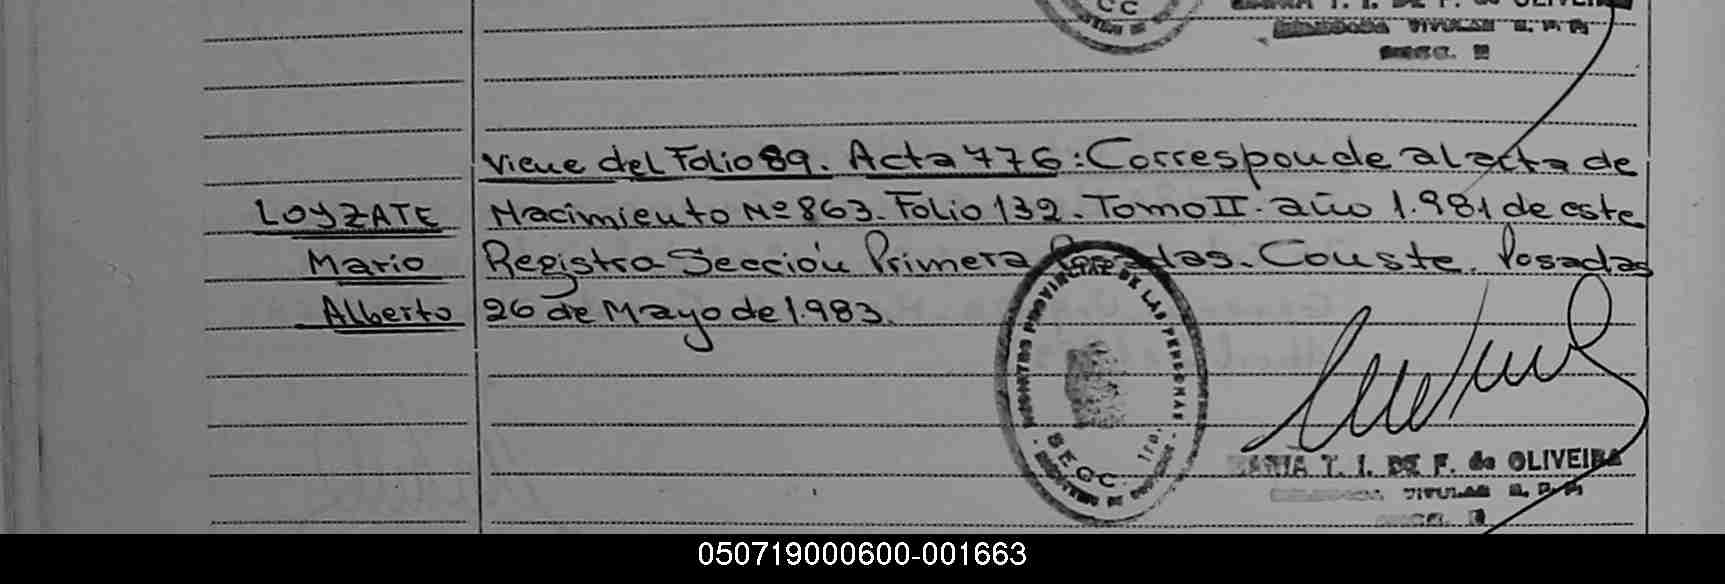 C C
MARIA T. I. DE F. de OLIVEIRA
TITULAR R. P. P.
SECC.
Viene del Folio 89. Acta 776: Corresponde al acta de
LOYZATE Nacimiento Nº 863. Folio 132. Tomo II. año 1.981 de este
Mario Registro Sección Primera Posadas. Conste. Posadas
Alberto 26 de Mayo de 1.983.
REGISTRO PROVINCIAL DE LAS PERSONAS
SECC. 1ra.
MARIA T. I. DE F. de OLIVEIRA
TITULAR R. P. P.
SECC.
050719000600-001663